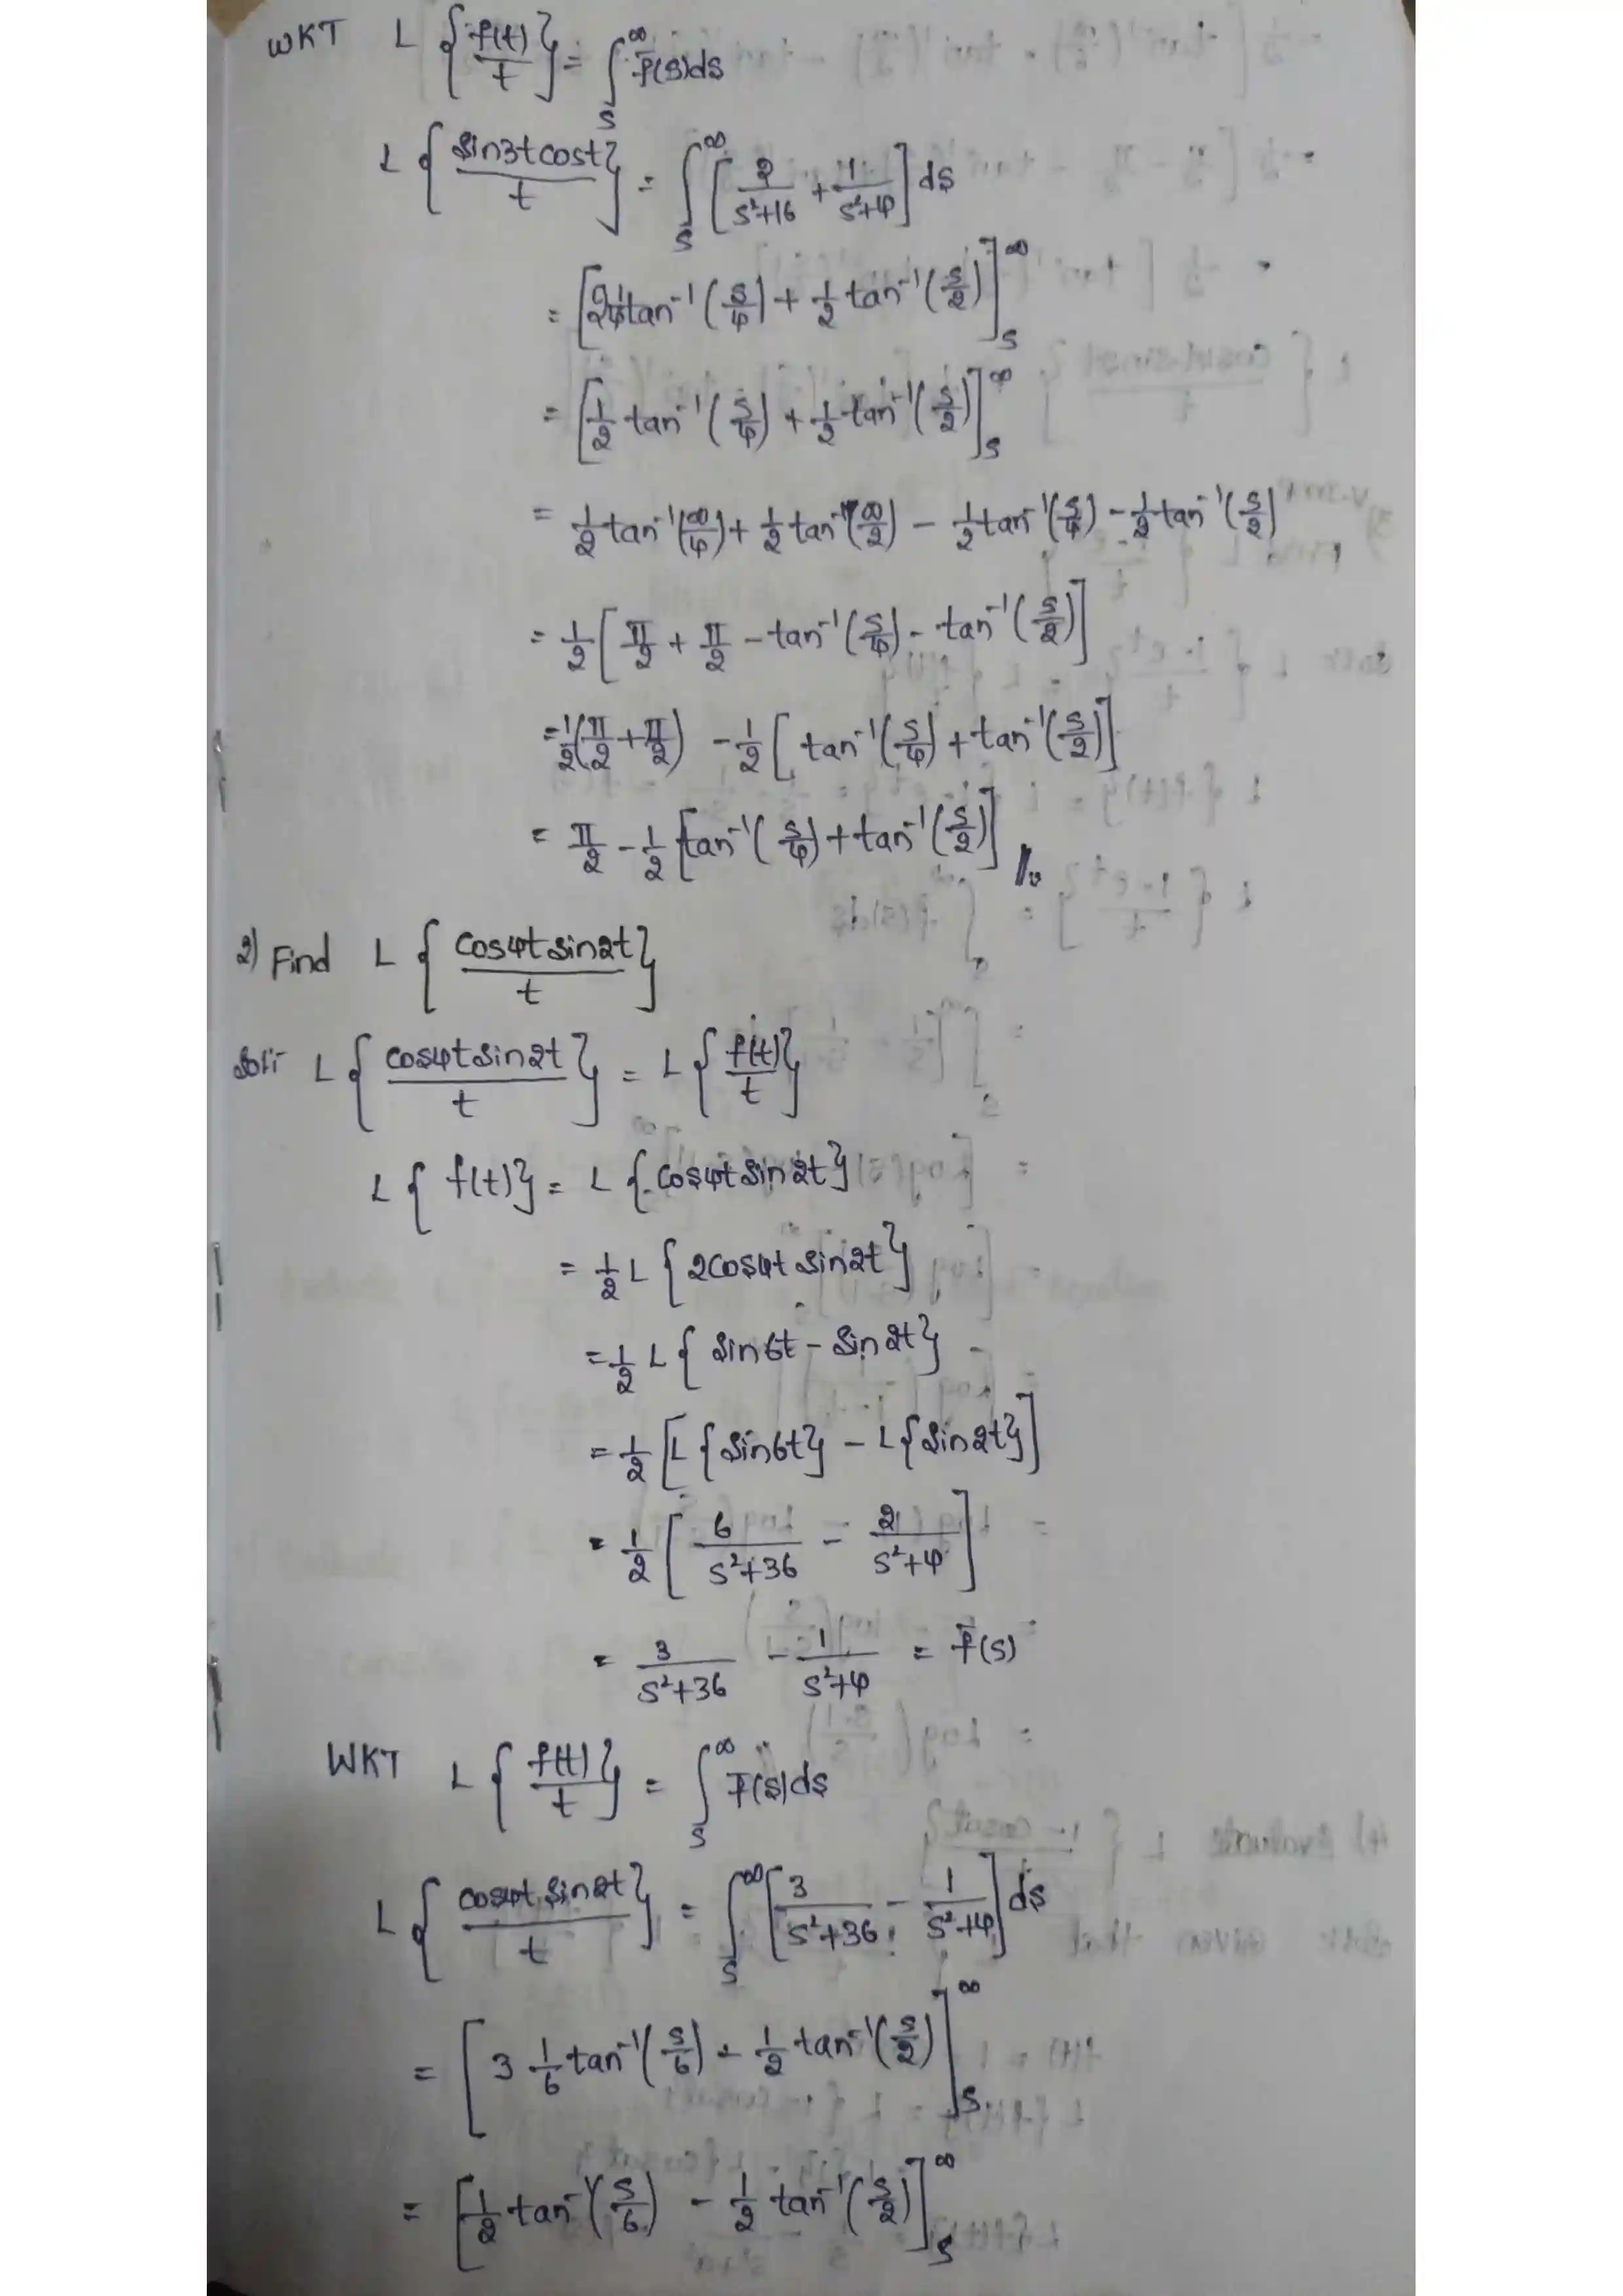 WKT L{f(t)/t} = ∫_s^∞ f̄(s)ds
L{sin3tcost/t} = ∫_s^∞ [2/(s²+16) + 1/(s²+4)] ds
= [2 1/4 tan⁻¹(s/4) + 1/2 tan⁻¹(s/2)]_s^∞
= [1/2 tan⁻¹(s/4) + 1/2 tan⁻¹(s/2)]_s^∞
= 1/2 tan⁻¹(∞/4) + 1/2 tan⁻¹(∞/2) - 1/2 tan⁻¹(s/4) - 1/2 tan⁻¹(s/2)
= 1/2 [π/2 + π/2 - tan⁻¹(s/4) - tan⁻¹(s/2)]
= 1/2(π/2 + π/2) - 1/2 [tan⁻¹(s/4) + tan⁻¹(s/2)]
= π/2 - 1/2 [tan⁻¹(s/4) + tan⁻¹(s/2)] //
2) Find L{cos4tsin2t/t}
Sol:- L{cos4tsin2t/t} = L{f(t)/t}
L{f(t)} = L{cos4tsin2t}
= 1/2 L{2cos4tsin2t}
= 1/2 L{sin6t - sin2t}
= 1/2 [L{sin6t} - L{sin2t}]
= 1/2 [6/(s²+36) - 2/(s²+4)]
= 3/(s²+36) - 1/(s²+4) = f̄(s)
WKT L{f(t)/t} = ∫_s^∞ f̄(s)ds
L{cos4tsin2t/t} = ∫_s^∞ [3/(s²+36) - 1/(s²+4)] ds
= [3 1/6 tan⁻¹(s/6) - 1/2 tan⁻¹(s/2)]_s^∞
= [1/2 tan⁻¹(s/6) - 1/2 tan⁻¹(s/2)]_s^∞